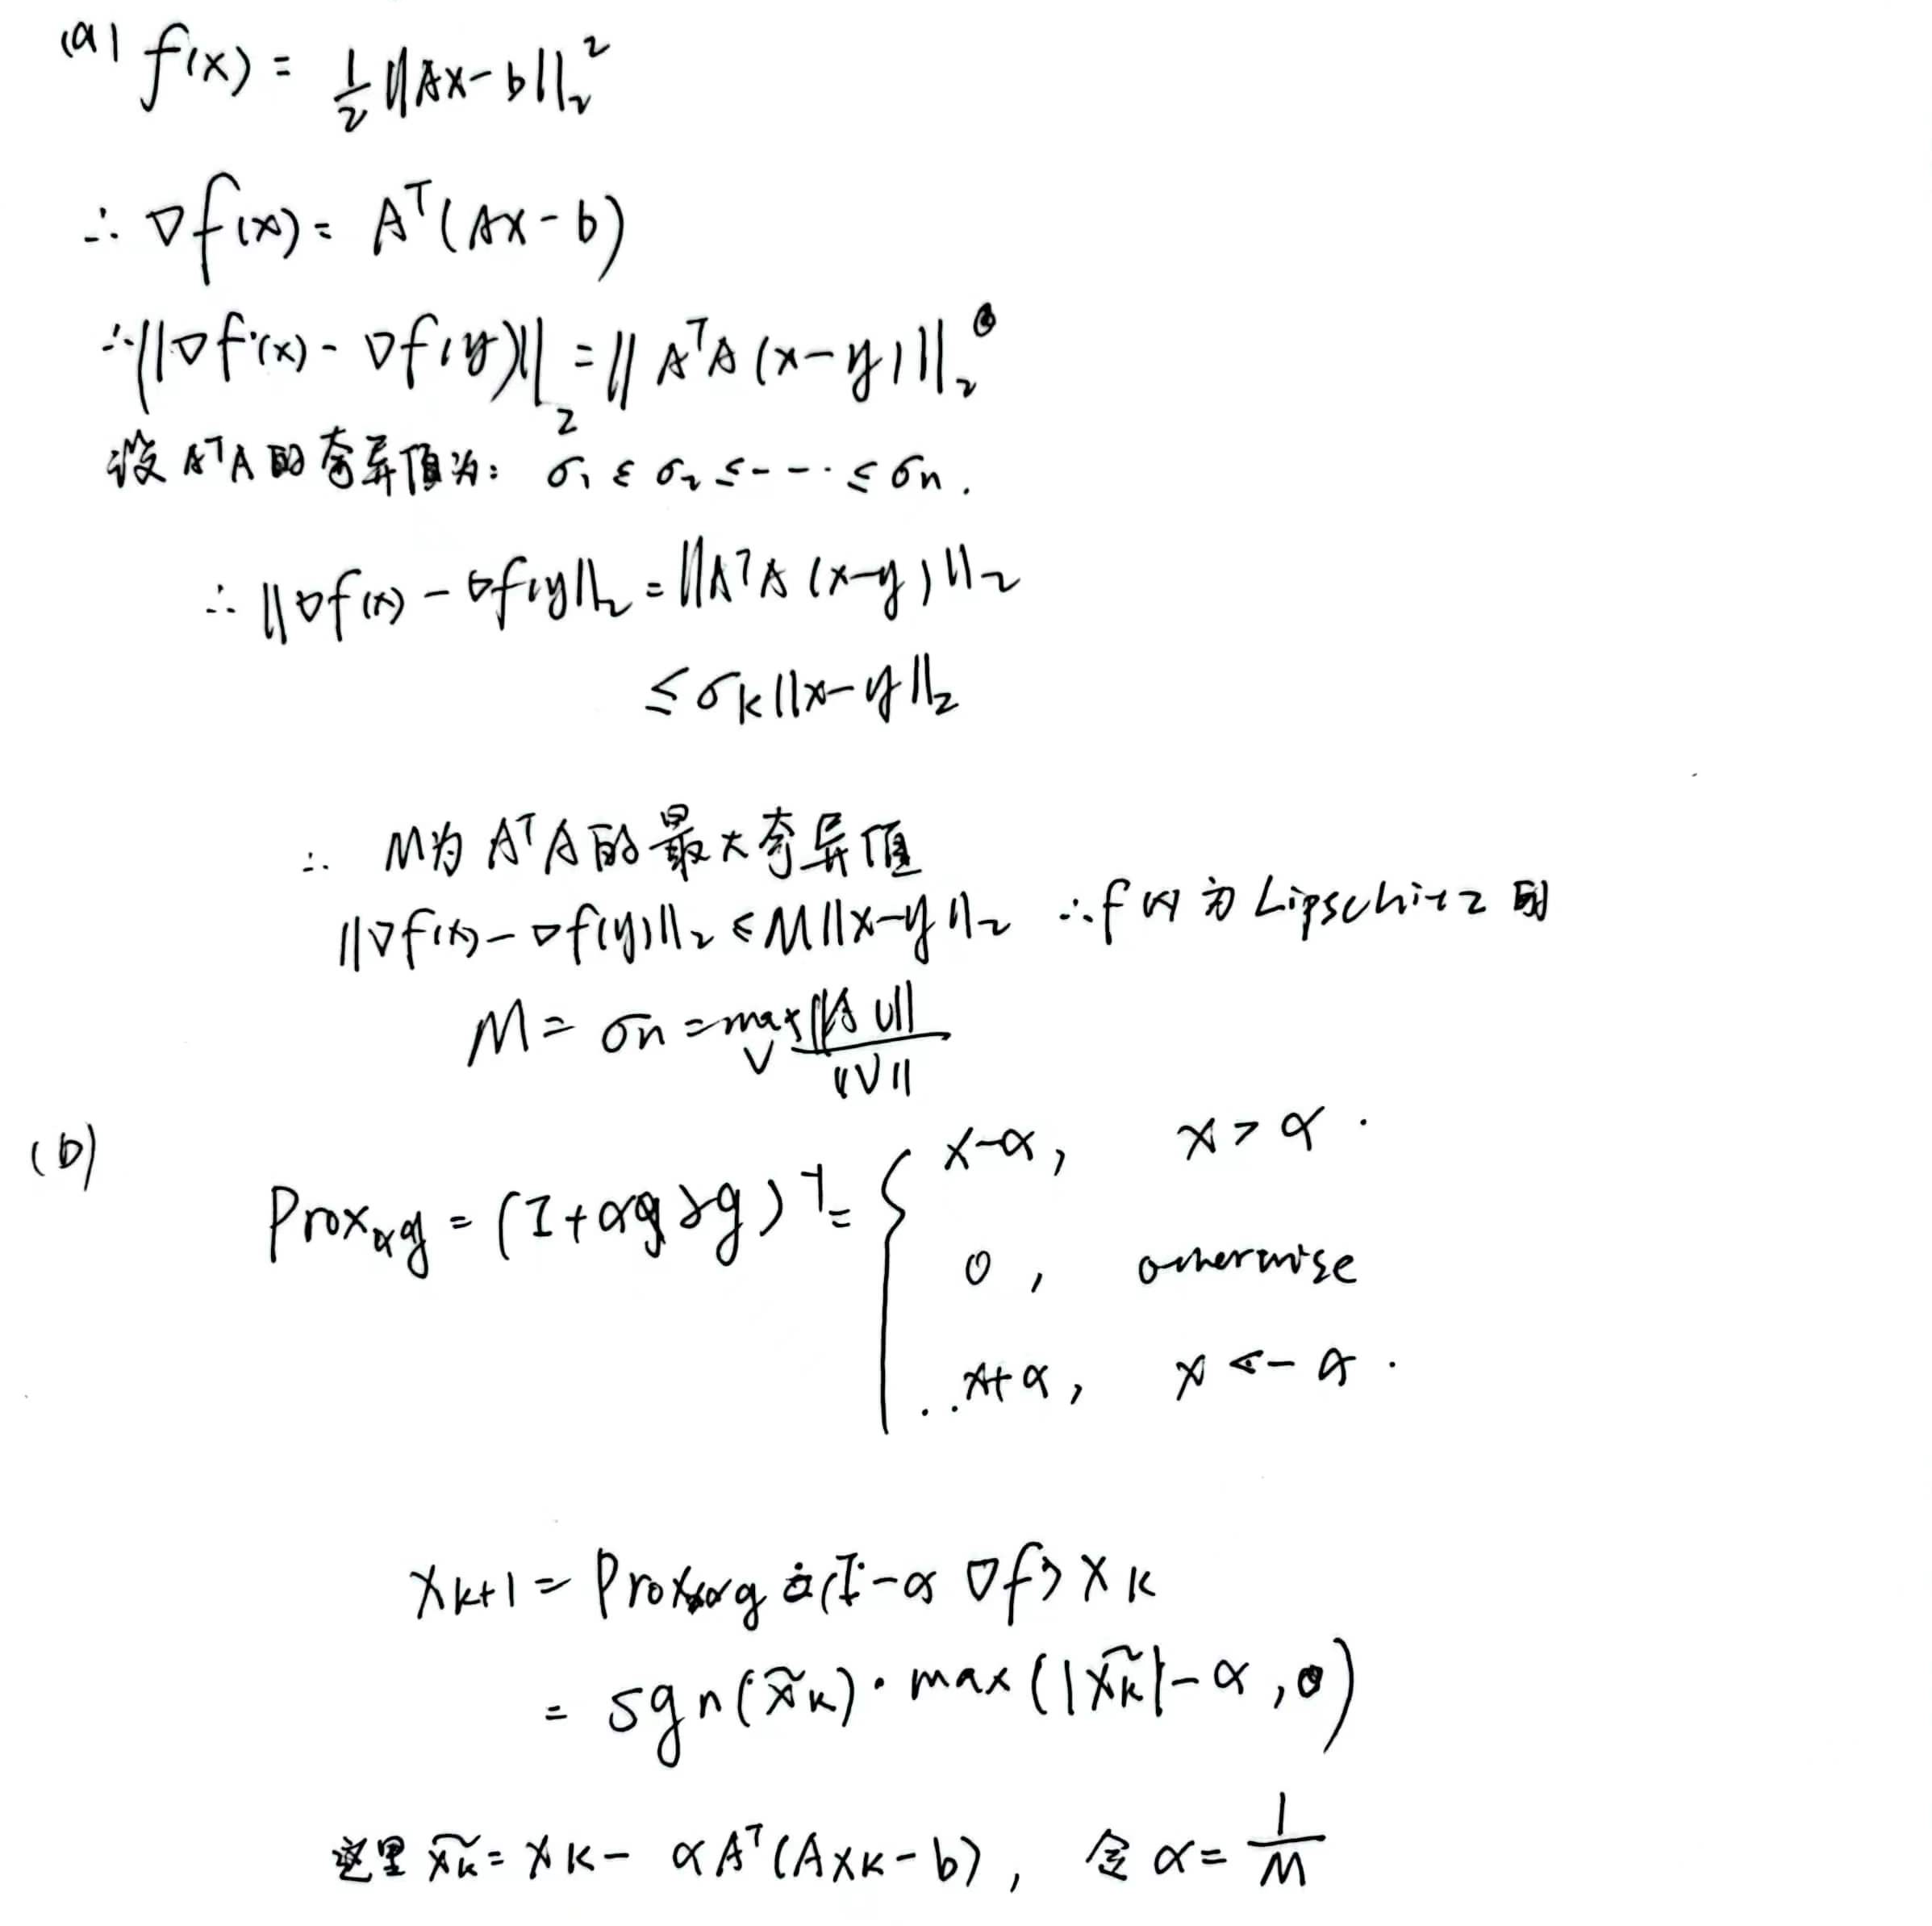 (a) f(x) = 1/2 ||Ax-b||₂²
∴ ∇f(x) = Aᵀ(Ax-b)
∴ ||∇f(x) - ∇f(y)||₂ = ||AᵀA(x-y)||₂
设 AᵀA 的奇异值为: σ₁ ≤ σ₂ ≤ --- ≤ σn.
∴ ||∇f(x) - ∇f(y)||₂ = ||AᵀA(x-y)||₂
≤ σk||x-y||₂
∴ M为 AᵀA 的最大奇异值
||∇f(x) - ∇f(y)||₂ ≤ M||x-y||₂ ∴ f(x) 为 Lipschitz 的
M = σn = max_v ||A v|| / ||v||
(b)
x-α, x > α.
Prox_αg = (I+α ∂g)⁻¹ = {
0, otherwise
x+α, x < -α.
x_{k+1} = Prox_αg (I-α ∇f) x_k
= sgn(x̃_k)·max(|x̃_k|-α, 0)
这里 x̃_k = x_k - αAᵀ(Ax_k-b), 令 α = 1/M